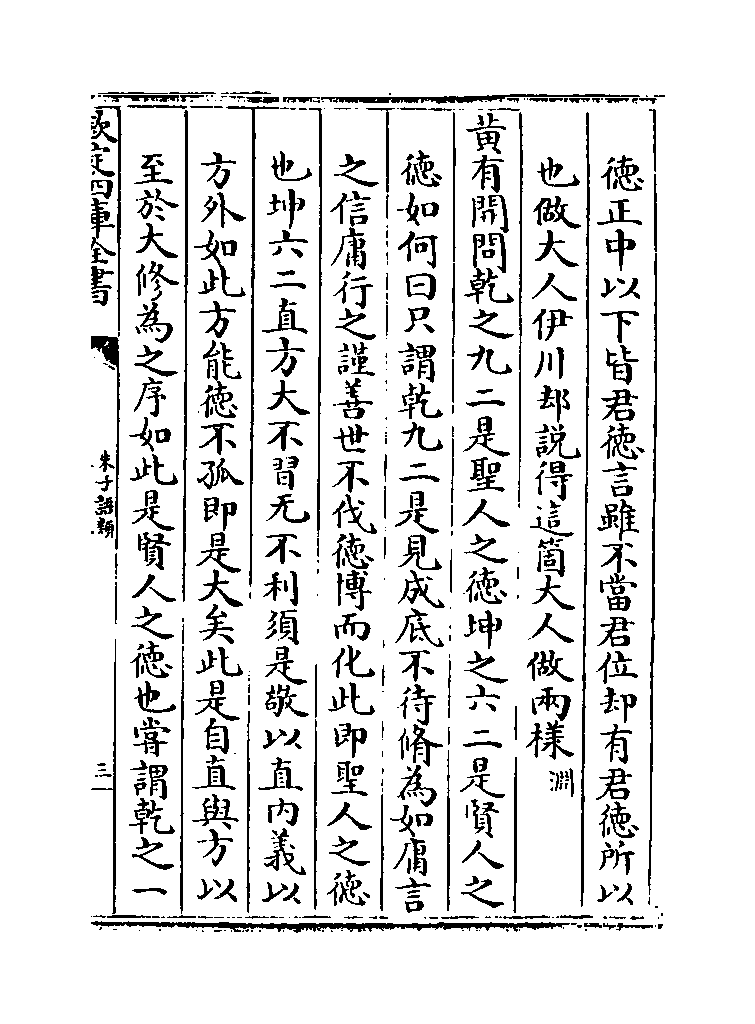 德正中以下皆君德言雖不當君位却有君德所以
也做大人伊川却説得這箇大人做兩様淵
黄有開問乾之九二是聖人之德坤之六二是賢人之
德如何曰只謂乾九二是見成底不待脩為如庸言
之信庸行之謹善世不伐德博而化此即聖人之德
也坤六二直方大不習无不利須是敬以直内義以
方外如此方能德不孤即是大矣此是自直與方以
至於大修為之序如此是賢人之德也嘗謂乾之一
欽定四庫全書
朱子語類
三